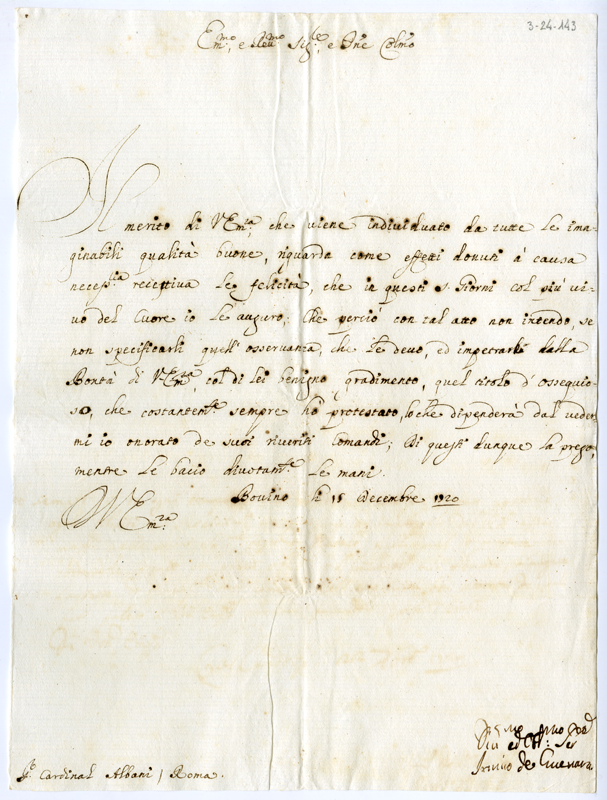 3-24-143
Em.mo e Reu.mo Sig.re e P.ne Colmo
Al merito di V Em.za che uiene indiuiduato da tutte le ima-
ginabili qualità buone, riguarda come effetti douuti à causa
necess.ria recettiua le felicità, che in questi s. Giorni col più ui-
uo del Cuore io le auguro; Che perciò con tal atto non intendo, se
non specificarli quell' osseruanza, che le deuo, ed impetrarmi dalla
Bontà di V Em.za, col di lei benigno gradimento, quel titolo d' ossequio-
so, che costantem.te sempre hò protestato, loche dipenderà dal ueder-
mi io onorato de suoi riueriti Comandi; Di questi dunque la prego,
mentre le bacio diuotam.te le mani.
Bouino li 15 Decembre 1720
D V Em.za
S.r Cardinal Albani / Roma.
de Gueuara